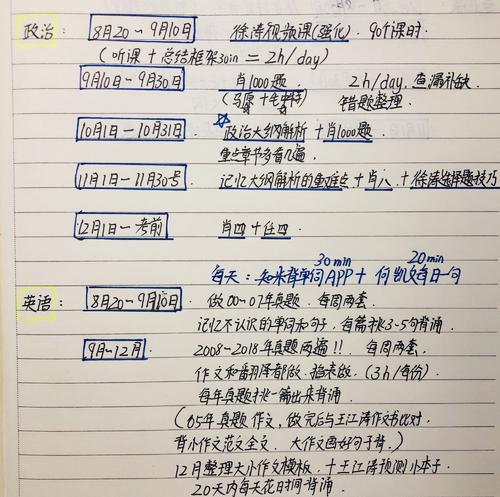 政治: 8月20~9月10日 徐涛视频课(强化). 90个课时.
(听课+总结框架30min = 2h/day)
9月10日-9月30日 肖1000题. 2h/day, 查漏补缺.
(马原+毛中特) 错题整理.
10月1日-10月31日 政治大纲解析+肖1000题.
重点章节多看几遍.
11月1日-11月30号 记忆大纲解析的重难点+肖八+徐涛选择题技巧
12月1日-考前 肖四+任四
30min 20min
每天: 知米背单词APP+何凯文每日一句
英语: 8月20-9月10日 做00-07年真题. 每周两套.
记忆不认识的单词和句子, 每篇挑3-5句背诵.
9月-12月. 2008-2018年真题两遍!! 每周两套.
作文和翻译都做. 掐表做. (3h/每份)
每年真题挑一篇出来背诵
(05年真题作文, 做完后与王江涛作文书比对.
背小作文范文全文. 大作文画好句子背.)
12月整理大小作文模板. +王江涛预测小本子.
20天内每天花时间背诵.